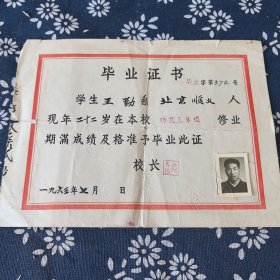 毕业证书
毕业字第372号
学生王勤系北京顺义人
现年二十二岁在本校师范三年级修业
期满成绩及格准予毕业此证
校长
一九六三年七月 日